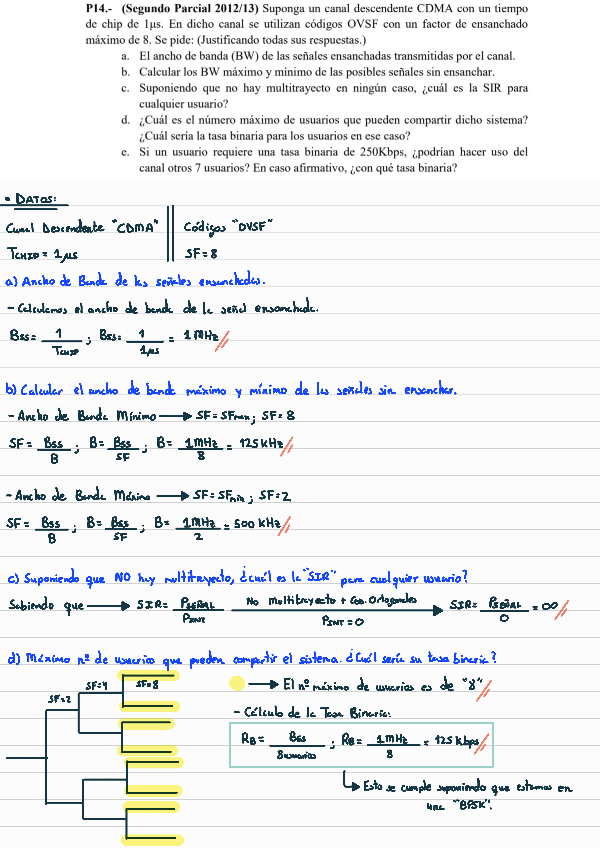 P14.- (Segundo Parcial 2012/13) Suponga un canal descendente CDMA con un tiempo
de chip de 1µs. En dicho canal se utilizan códigos OVSF con un factor de ensanchado
máximo de 8. Se pide: (Justificando todas sus respuestas.)
a. El ancho de banda (BW) de las señales ensanchadas transmitidas por el canal.
b. Calcular los BW máximo y mínimo de las posibles señales sin ensanchar.
c. Suponiendo que no hay multitrayecto en ningún caso, ¿cuál es la SIR para
cualquier usuario?
d. ¿Cuál es el número máximo de usuarios que pueden compartir dicho sistema?
¿Cuál sería la tasa binaria para los usuarios en ese caso?
e. Si un usuario requiere una tasa binaria de 250Kbps, ¿podrían hacer uso del
canal otros 7 usuarios? En caso afirmativo, ¿con qué tasa binaria?
• DATOS:
Canal Descendente "CDMA" || Códigos "OVSF"
TCHIP = 1µs SF = 8
a) Ancho de Banda de las señales ensanchadas.
- Calculamos el ancho de banda de la señal ensanchada.
Bss = 1/TCHIP ; Bss = 1/1µs = 1 MHz
b) Calcular el ancho de banda máximo y mínimo de las señales sin ensanchar.
- Ancho de Banda Mínimo → SF = SFmax ; SF = 8
SF = Bss/B ; B = Bss/SF ; B = 1MHz/8 = 125 KHz
- Ancho de Banda Máximo → SF = SFmin ; SF = 2
SF = Bss/B ; B = Bss/SF ; B = 1MHz/2 = 500 KHz
c) Suponiendo que NO hay multitrayecto, ¿cuál es la "SIR" para cualquier usuario?
Sabiendo que → SIR = PSEÑAL/PINT No Multitrayecto + Cod. Ortogonales PINT = 0 → SIR = PSEÑAL/0 = ∞
d) Máximo nº de usuarios que pueden compartir el sistema. ¿Cuál sería su tasa binaria?
SF=2 SF=4 SF=8
→ El nº máximo de usuarios es de "8"
- Cálculo de la Tasa Binaria:
RB = Bss/8usuarios ; RB = 1MHz/8 = 125 kbps
Esto se cumple suponiendo que estamos en
una "BPSK".